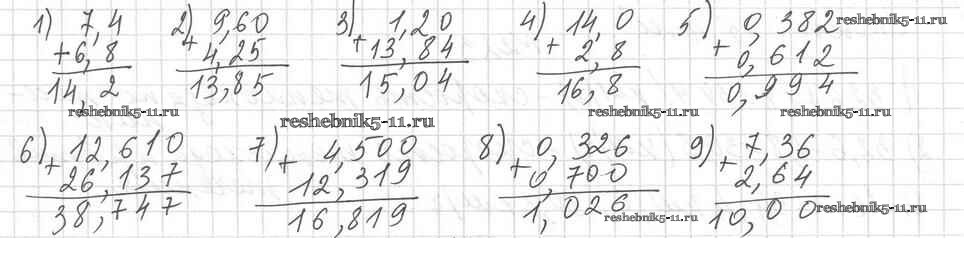 1) 7,4 2) 9,60 3) 1,20 4) 14,0 5) 0,382 reshebnik5-11.ru
+6,8 + 4,25 +13,84 + 2,8 + 0,612
14,2 13,85 15,04 16,8 0,994
reshebnik5-11.ru reshebnik5-11.ru reshebnik5-11.ru reshebnik5-11.ru
reshebnik5-11.ru
6) +12,610 7) + 4,500 8) +0,326 9) +7,36
26,137 12,319 0,700 2,64
38,747 16,819 1,026 10,00 reshebnik5-11.ru
reshebnik5-11.ru